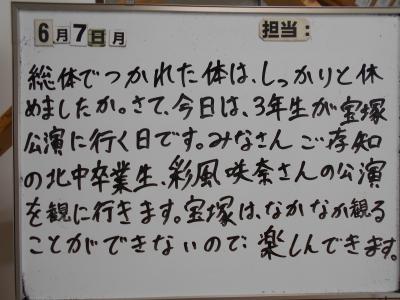 6月7日月 担当:
総体でつかれた体は、しっかりと休
めましたか。さて、今日は、3年生が宝塚
公演に行く日です。みなさんご存知
の北中卒業生、彩風咲奈さんの公演
を観に行きます。宝塚は、なかなか観る
ことができないので、楽しんできます。